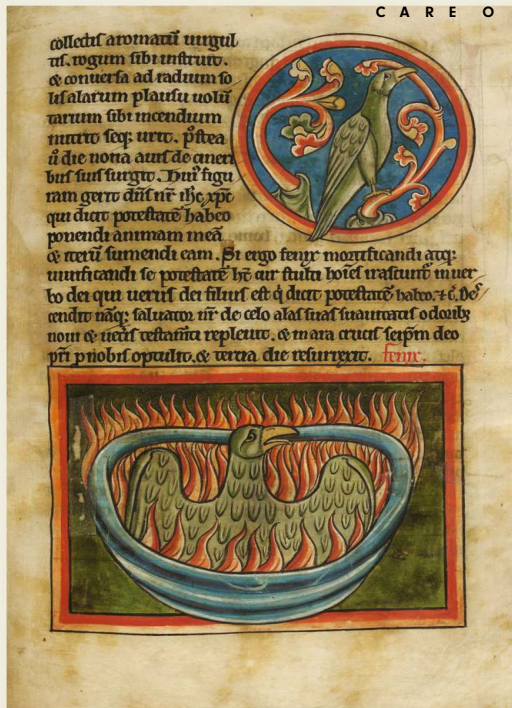 C A R E O
collectis aromatū uirgul
tis. rogum sibi instruit.
& conuersa ad radium so
lis alarum plausu uolū
tarium sibi incendium
nutrit seq; urit. p̉stea
ū die nona auis de cineri
bus suis surgit. Huiꝰ figu
ram gerit dn̄s nr̄ ih̄c xp̄c
qui dicit potestatē habeo
ponendi animam meā
& iterū sumendi eam. Si ergo fenix mortificandi atq;
uiuificandi se potestatē ht̄ cur stulti hoīes irascunt̄ in uer
bo dei qui uerus dei filius est q̇ dicit potestatē habeo. ⁊ c̄. Des
cendit nāq; saluator nr̄ de celo alas suas suauitatis odoribꝫ
noui & ueteris testam̄ti repleuit. & in ara crucis seip̄m deo
pr̄i ꝓ nobis optulit. & tertia die resurrexit. fenix.